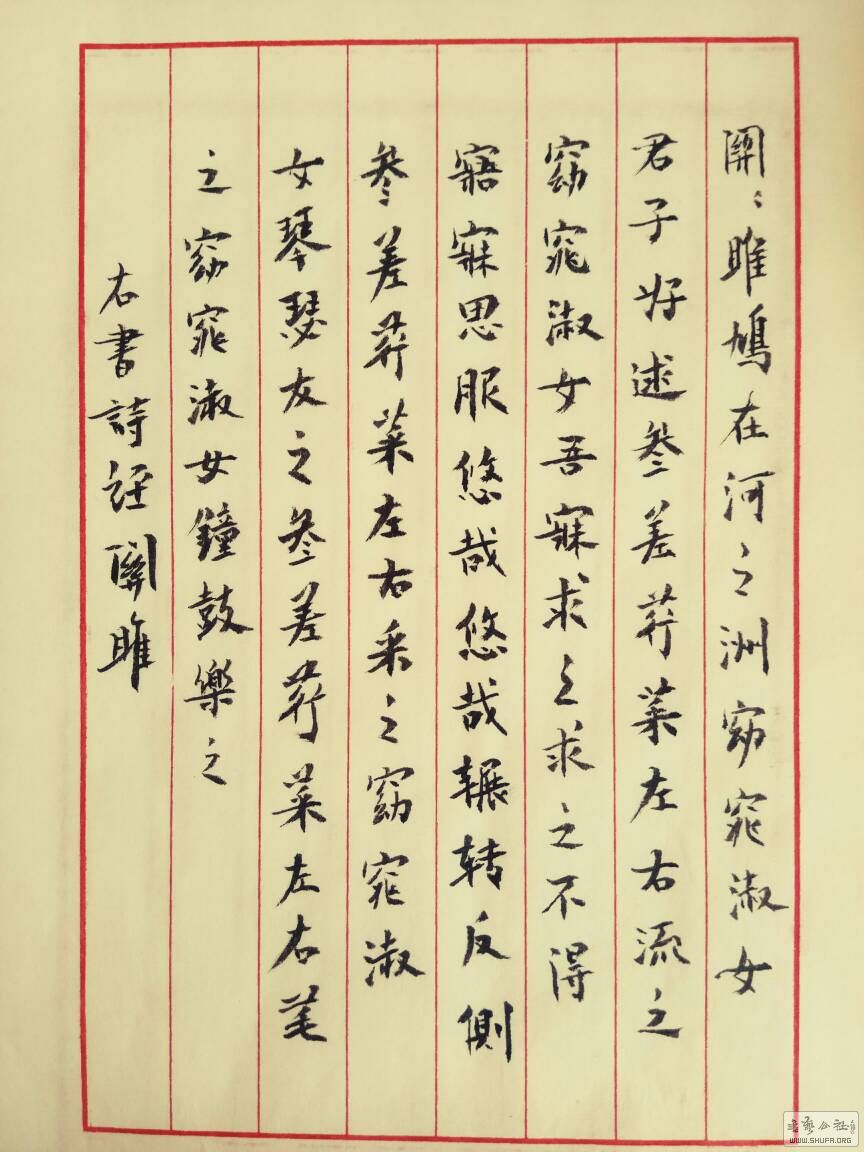 關〻雎鳩在河之洲窈窕淑女
君子好逑叅差荇菜左右流之
窈窕淑女吾寐求之求之不得
寤寐思服悠哉悠哉輾转反側
叅差荇菜左右采之窈窕淑
女琴瑟友之叅差荇菜左右芼
之窈窕淑女鐘鼓樂之
右書詩経關雎
书艺公社
WWW.SHUFA.ORG